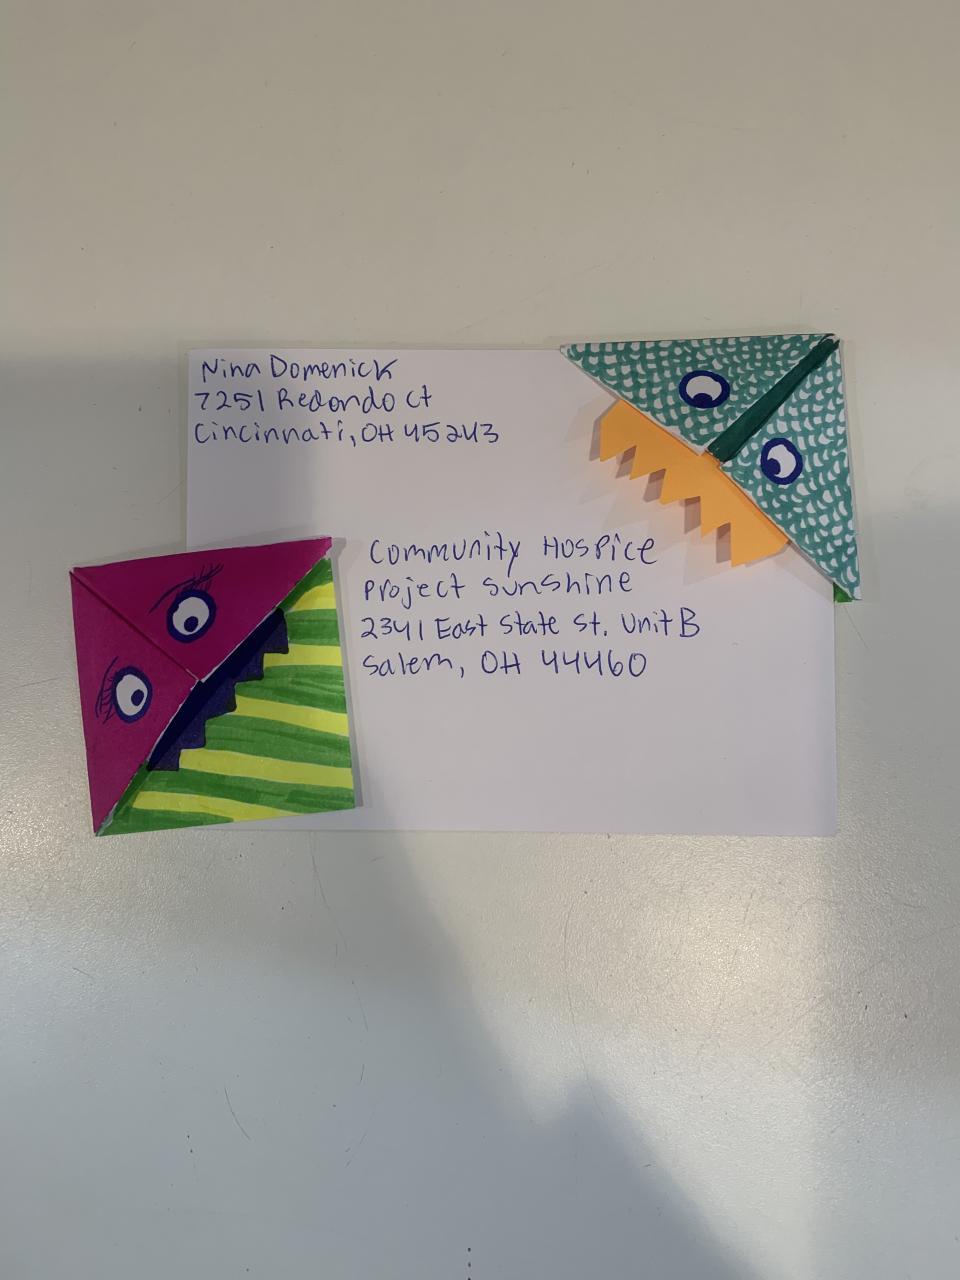 Nina Domenick
7251 Redondo ct
Cincinnati, OH 45243
Community Hospice
Project Sunshine
2341 East State St. Unit B
Salem, OH 44460